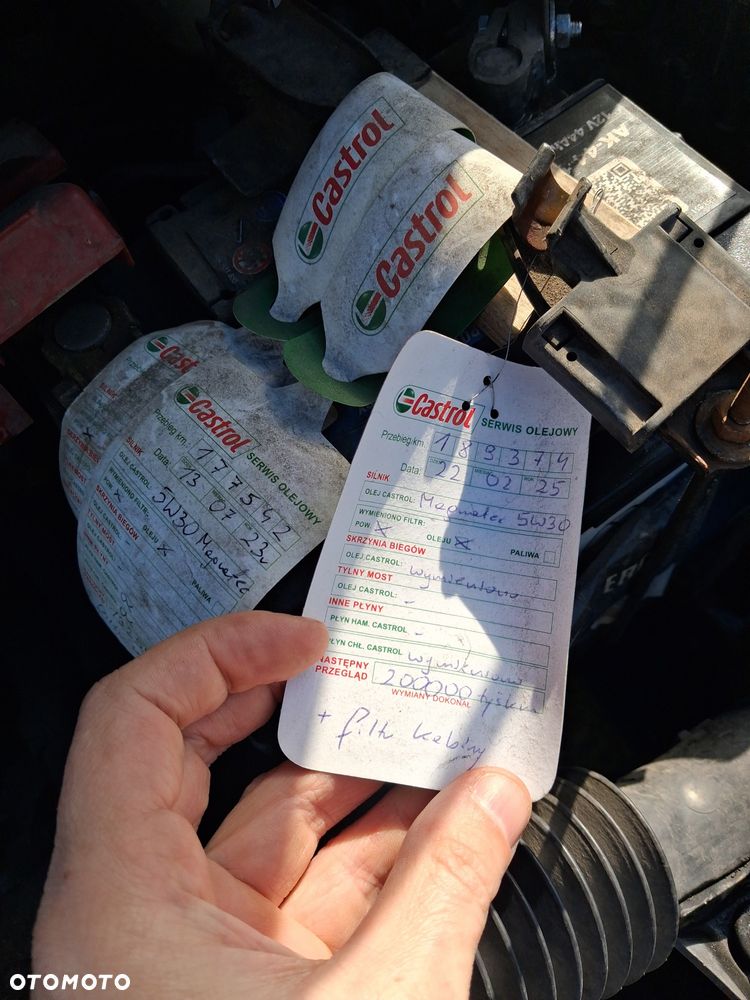 Castrol
Castrol
Castrol SERWIS OLEJOWY
Przebieg/km: 189374
DZIEŃ MIESIĄC ROK
Data: 22 02 25
SILNIK
OLEJ CASTROL: Magnatec 5W30
WYMIENIONO FILTR:
POW. x OLEJU x PALIWA
SKRZYNIA BIEGÓW
OLEJ CASTROL: wymieniono
TYLNY MOST
OLEJ CASTROL: -
INNE PŁYNY
PŁYN HAM. CASTROL -
PŁYN CHŁ. CASTROL wymieniono
NASTĘPNY PRZEGLĄD 200000
WYMIANY DOKONAŁ
+ filtr kabiny
Castrol SERWIS OLEJOWY
Przebieg/km: 177542
Data: 13 07 23r
SILNIK
OLEJ CASTROL: 5W30 Magnatec
WYMIENIONO FILTR:
POW. x OLEJU x PALIWA
SKRZYNIA BIEGÓW
OLEJ CASTROL:
TYLNY MOST
Cast
Przebieg
OTOMOTO